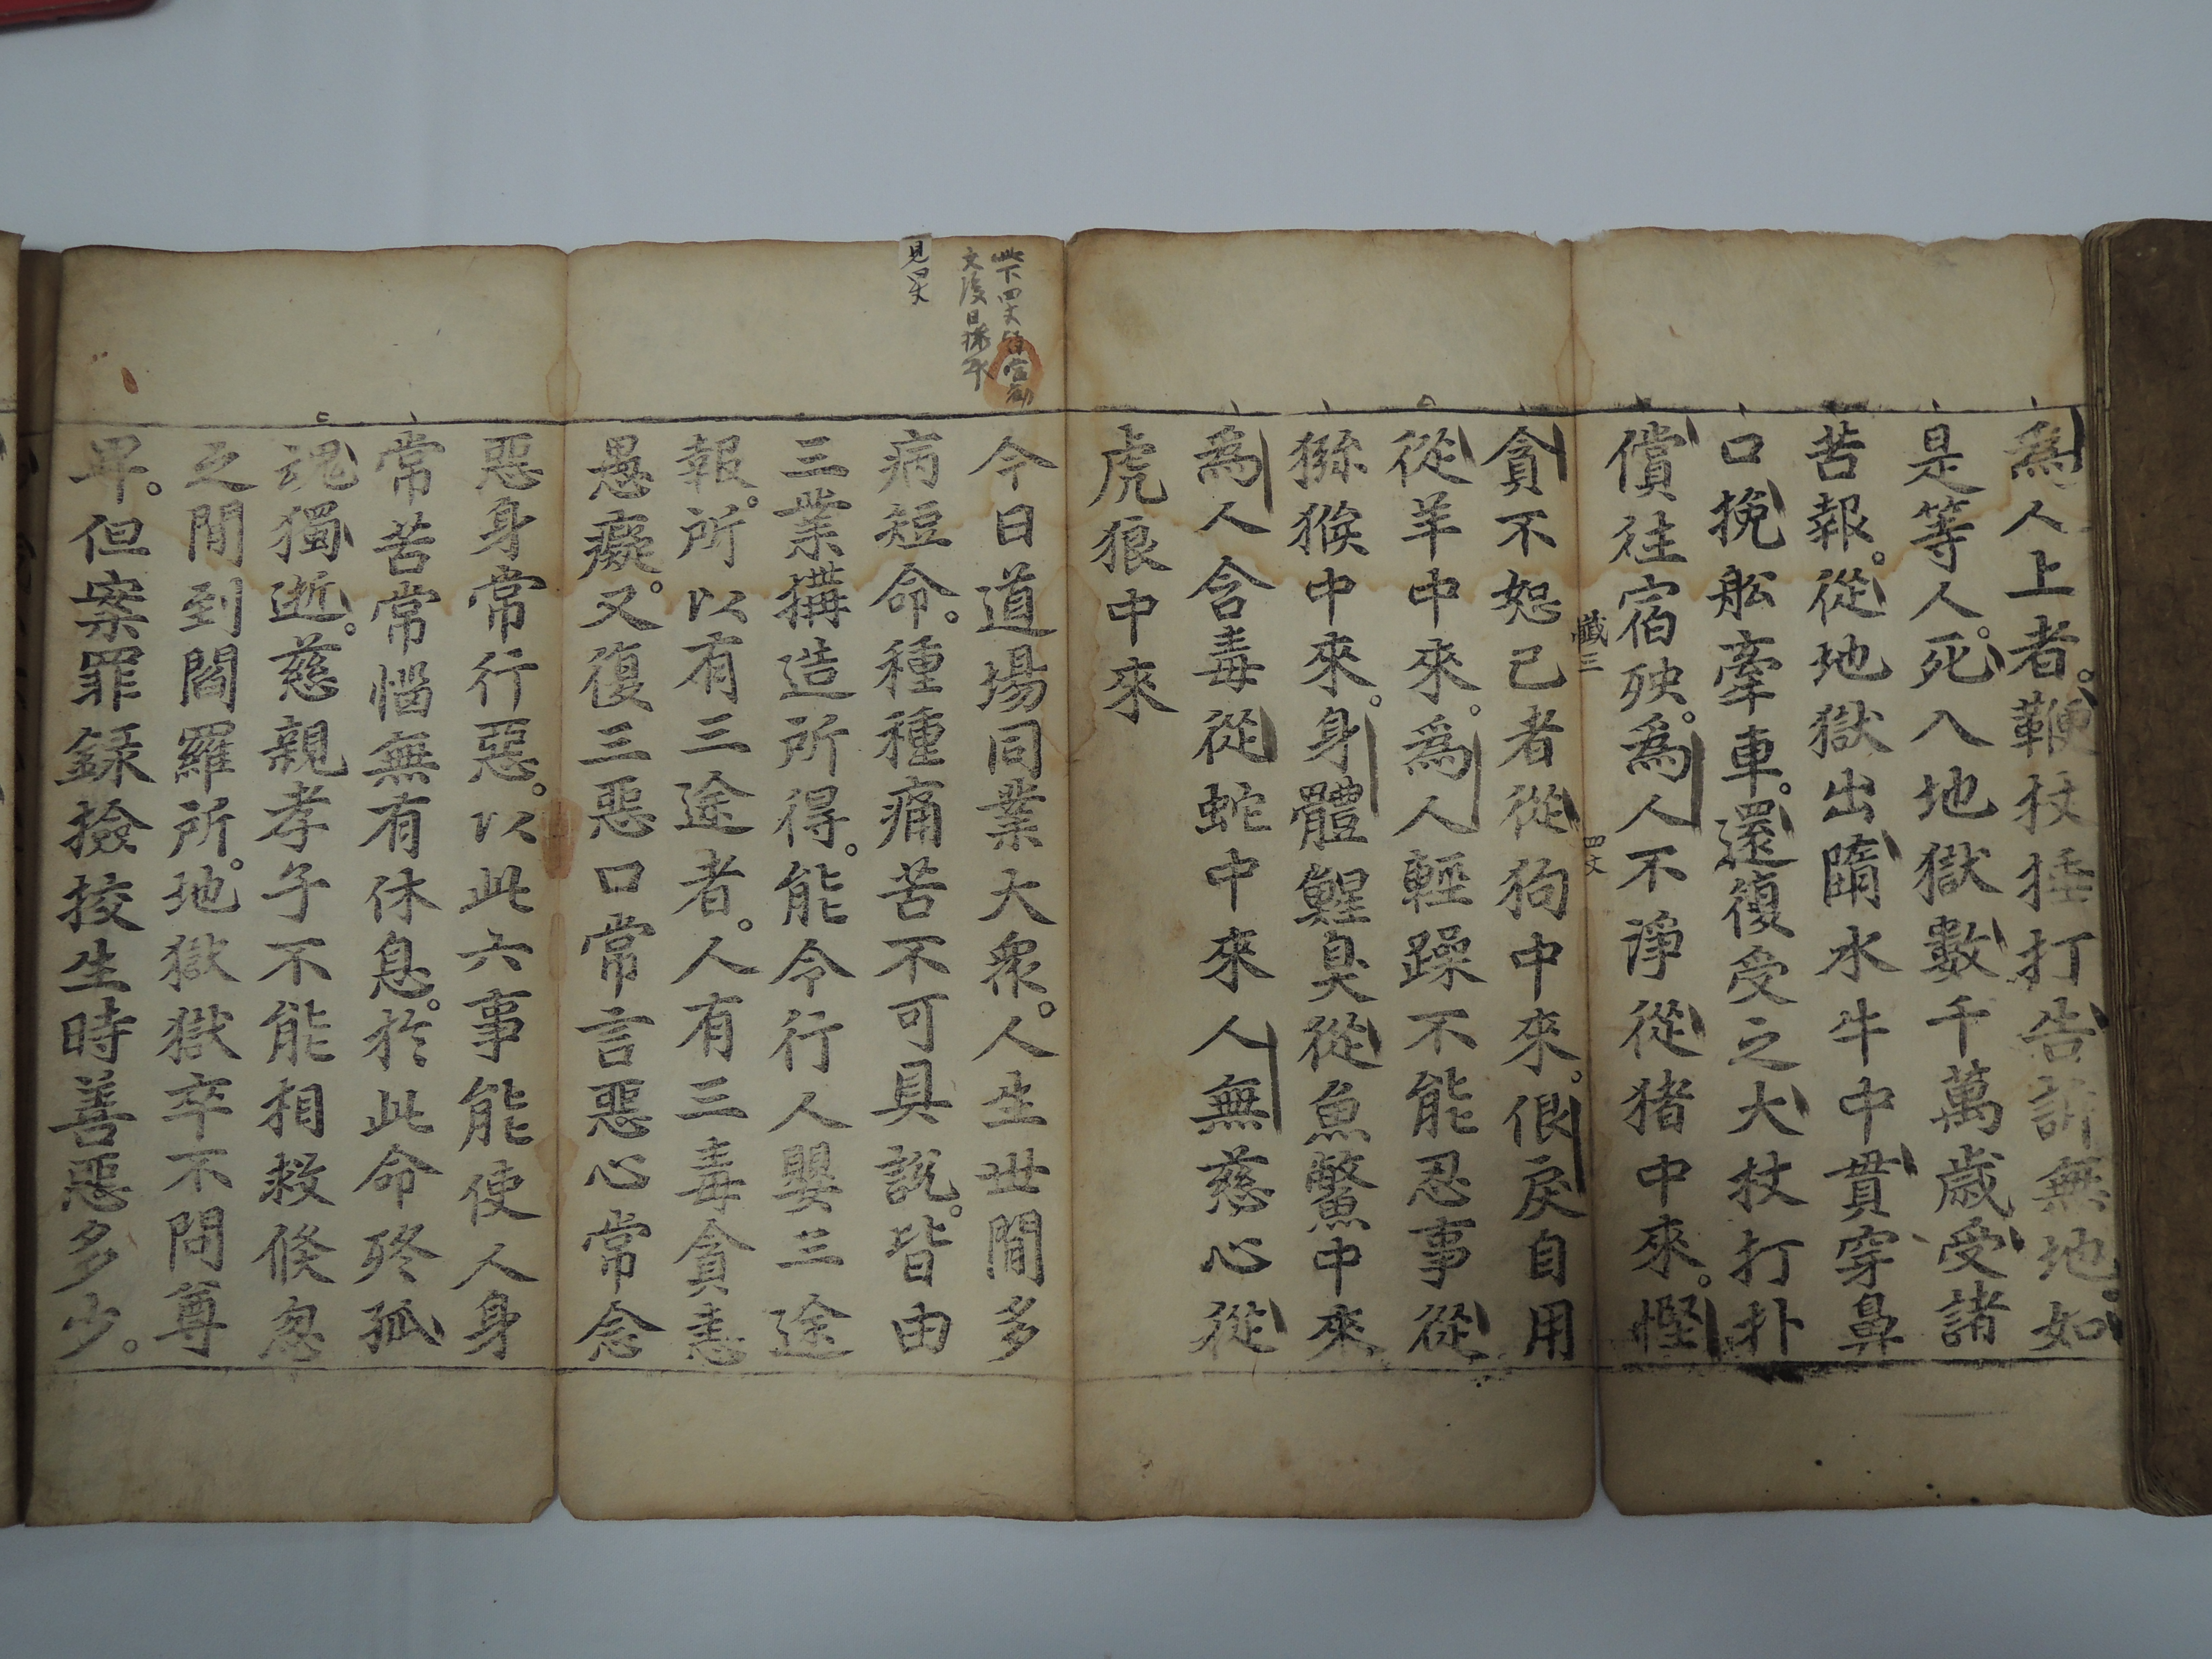 為人上者鞭杖捶打告訴無地如
是等人死入地獄數千萬歲受諸
苦報從地獄出隨水牛中貫穿鼻
口挽舩牽車還復受之大杖打扑
償往宿殃為人不淨從猪中來慳
懺三
四丈
貪不恕己者從狗中來佷戾自用
從羊中來為人輕躁不能忍事從
猕猴中來身體鯹臭從魚鱉中來
為人含毒從蛇中來人無慈心從
虎狼中來
今日道場同業大衆人生世間多
病短命種種痛苦不可具說皆由
三業搆造所得能令行人嬰三途
報所以有三途者人有三毒貪恚
愚癡又復三惡口常言惡心常念
惡身常行惡以此六事能使人身
常苦常惱無有休息於此命終孤
魂獨逝慈親孝子不能相救倏忽
之間到閻羅所地獄獄卒不問尊
卑但案罪録撿挍生時善惡多少